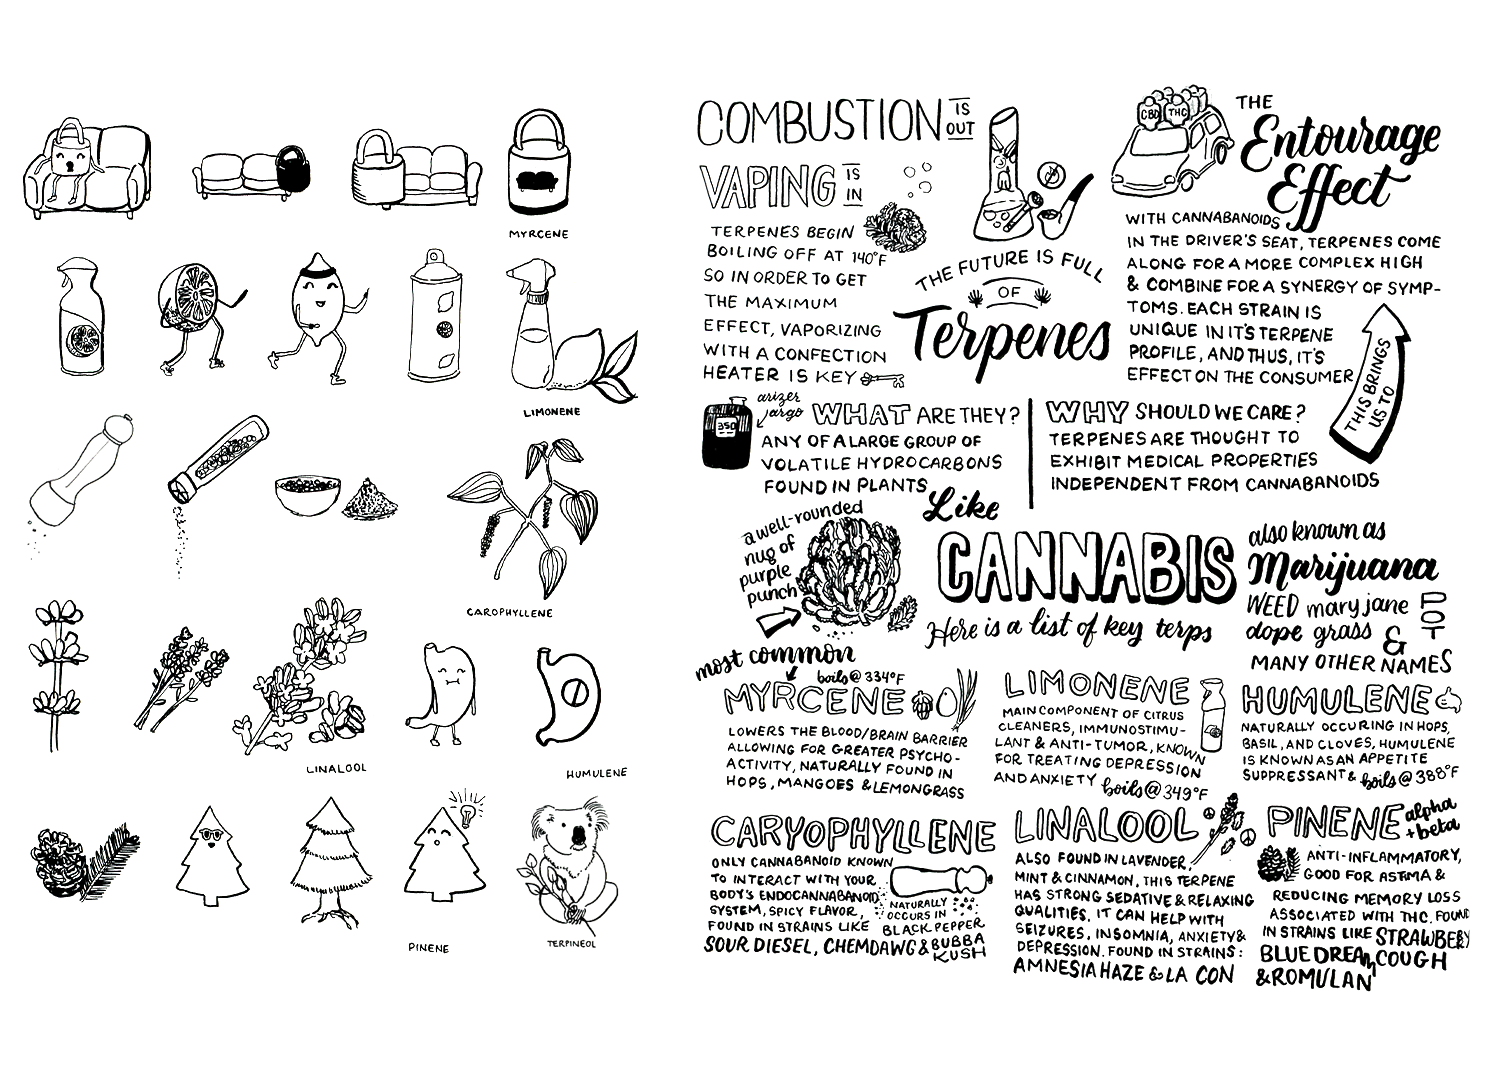 MYRCENE
LIMONENE
CAROPHYLLENE
LINALOOL
HUMULENE
PINENE
TERPINEOL
COMBUSTION IS OUT
VAPING IS IN
TERPENES BEGIN
BOILING OFF AT 140°F
SO IN ORDER TO GET
THE MAXIMUM
EFFECT, VAPORIZING
WITH A CONFECTION
HEATER IS KEY
THE FUTURE IS FULL
OF
Terpenes
CBD THC
THE
Entourage
Effect
WITH CANNABANOIDS
IN THE DRIVER'S SEAT, TERPENES COME
ALONG FOR A MORE COMPLEX HIGH
& COMBINE FOR A SYNERGY OF SYMP-
TOMS. EACH STRAIN IS
UNIQUE IN IT'S TERPENE
PROFILE, AND THUS, IT'S
EFFECT ON THE CONSUMER
THIS BRINGS
US TO
350
arizer
argo
WHAT ARE THEY?
ANY OF A LARGE GROUP OF
VOLATILE HYDROCARBONS
FOUND IN PLANTS
WHY SHOULD WE CARE?
TERPENES ARE THOUGHT TO
EXHIBIT MEDICAL PROPERTIES
INDEPENDENT FROM CANNABANOIDS
Like
CANNABIS
a well-rounded
nug of
purple
punch
also known as
Marijuana
WEED mary jane POT
dope grass &
MANY OTHER NAMES
Here is a list of key terps
most common
boils @ 334°F
MYRCENE
LOWERS THE BLOOD/BRAIN BARRIER
ALLOWING FOR GREATER PSYCHO-
ACTIVITY, NATURALLY FOUND IN
HOPS, MANGOES & LEMONGRASS
LIMONENE
MAIN COMPONENT OF CITRUS
CLEANERS, IMMUNOSTIMU-
LANT & ANTI-TUMOR, KNOWN
FOR TREATING DEPRESSION
AND ANXIETY boils @ 349°F
HUMULENE
NATURALLY OCCURING IN HOPS,
BASIL, AND CLOVES, HUMULENE
IS KNOWN AS AN APPETITE
SUPPRESSANT & boils @ 388°F
CARYOPHYLLENE
ONLY CANNABANOID KNOWN
TO INTERACT WITH YOUR
BODY'S ENDOCANNABANOID
SYSTEM, SPICY FLAVOR,
FOUND IN STRAINS LIKE
SOUR DIESEL, CHEMDAWG & BUBBA
KUSH
NATURALLY
OCCURS IN
BLACK PEPPER
LINALOOL
ALSO FOUND IN LAVENDER,
MINT & CINNAMON, THIS TERPENE
HAS STRONG SEDATIVE & RELAXING
QUALITIES. IT CAN HELP WITH
SEIZURES, INSOMNIA, ANXIETY &
DEPRESSION. FOUND IN STRAINS:
AMNESIA HAZE & LA CON
PINENE alpha
+ beta
ANTI-INFLAMMATORY,
GOOD FOR ASTMA &
REDUCING MEMORY LOSS
ASSOCIATED WITH THC. FOUND
IN STRAINS LIKE STRAWBERY
BLUE DREAM COUGH
& ROMULAN